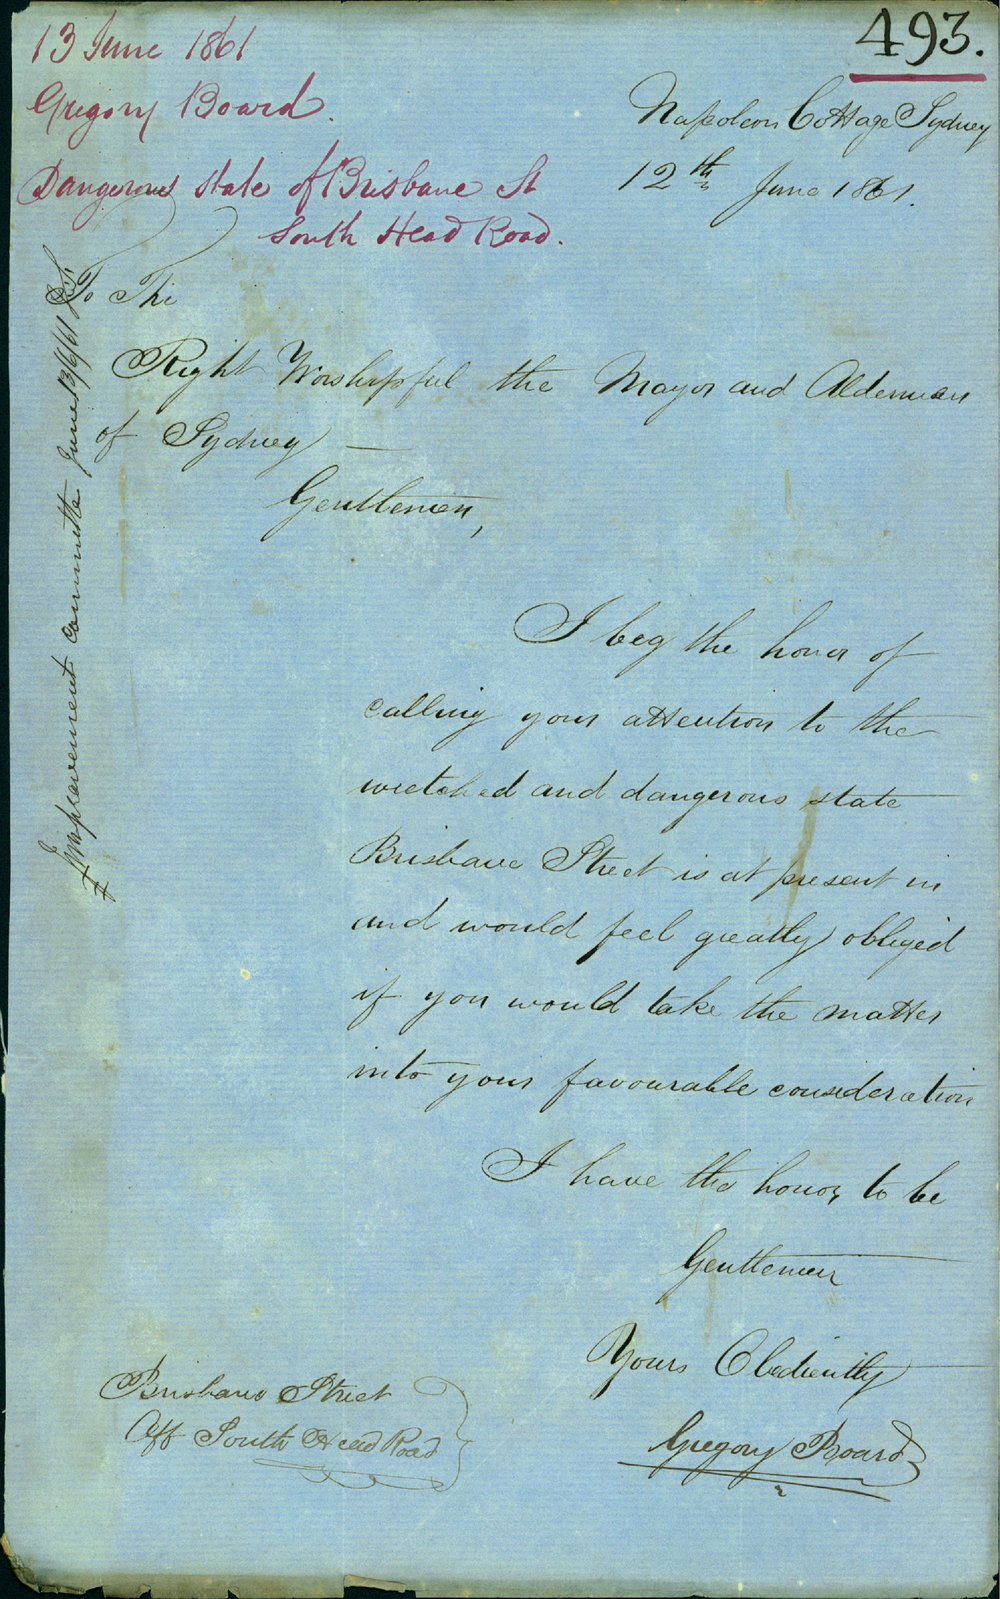 493.
13 June 1861
Gregory Board.
Dangerous state of Brisbane St
South Head Road.
Napoleon Cottage Sydney
12th June 1861.
To The
Right Worshipful the Mayor and Aldermen
of Sydney —
Gentlemen,
I beg the honor of
calling your attention to the
wretched and dangerous state
Brisbane Street is at present in
and would feel greatly obliged
if you would take the matter
into your favourable consideration
I have the honor to be
Gentlemen
Yours Obediently
Gregory Board
Brisbane Street
Off South Head Road
Improvement Committee June 13/6/61